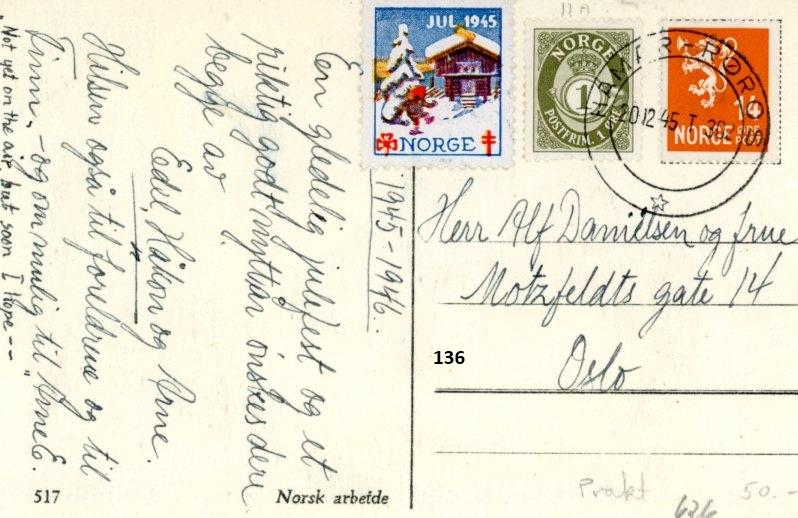 1945-1946.
En gledelig julefest og et
riktig godt nyttår ønskes dere
begge av
Edel, Håkon og Arne.
Hilsen også til foreldrene og til
Finn, - og om mulig til "Arne E.
"Not yet on the air, but soon I hope--
517
Norsk arbeide
JUL 1945
NORGE
NORGE
1
POSTFRIM. 1 ØRE
NORGE
20 12 45
Herr Alf Danielsen og frue
Motzfeldts gate 14
136
Oslo
Prakt 50.-
626